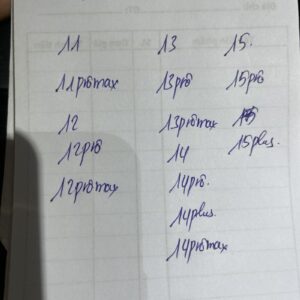 11
11promax
12
12pro
12promax
13
13pro
13promax
14
14pro.
14plus.
14promax
15.
15pro
15plus.